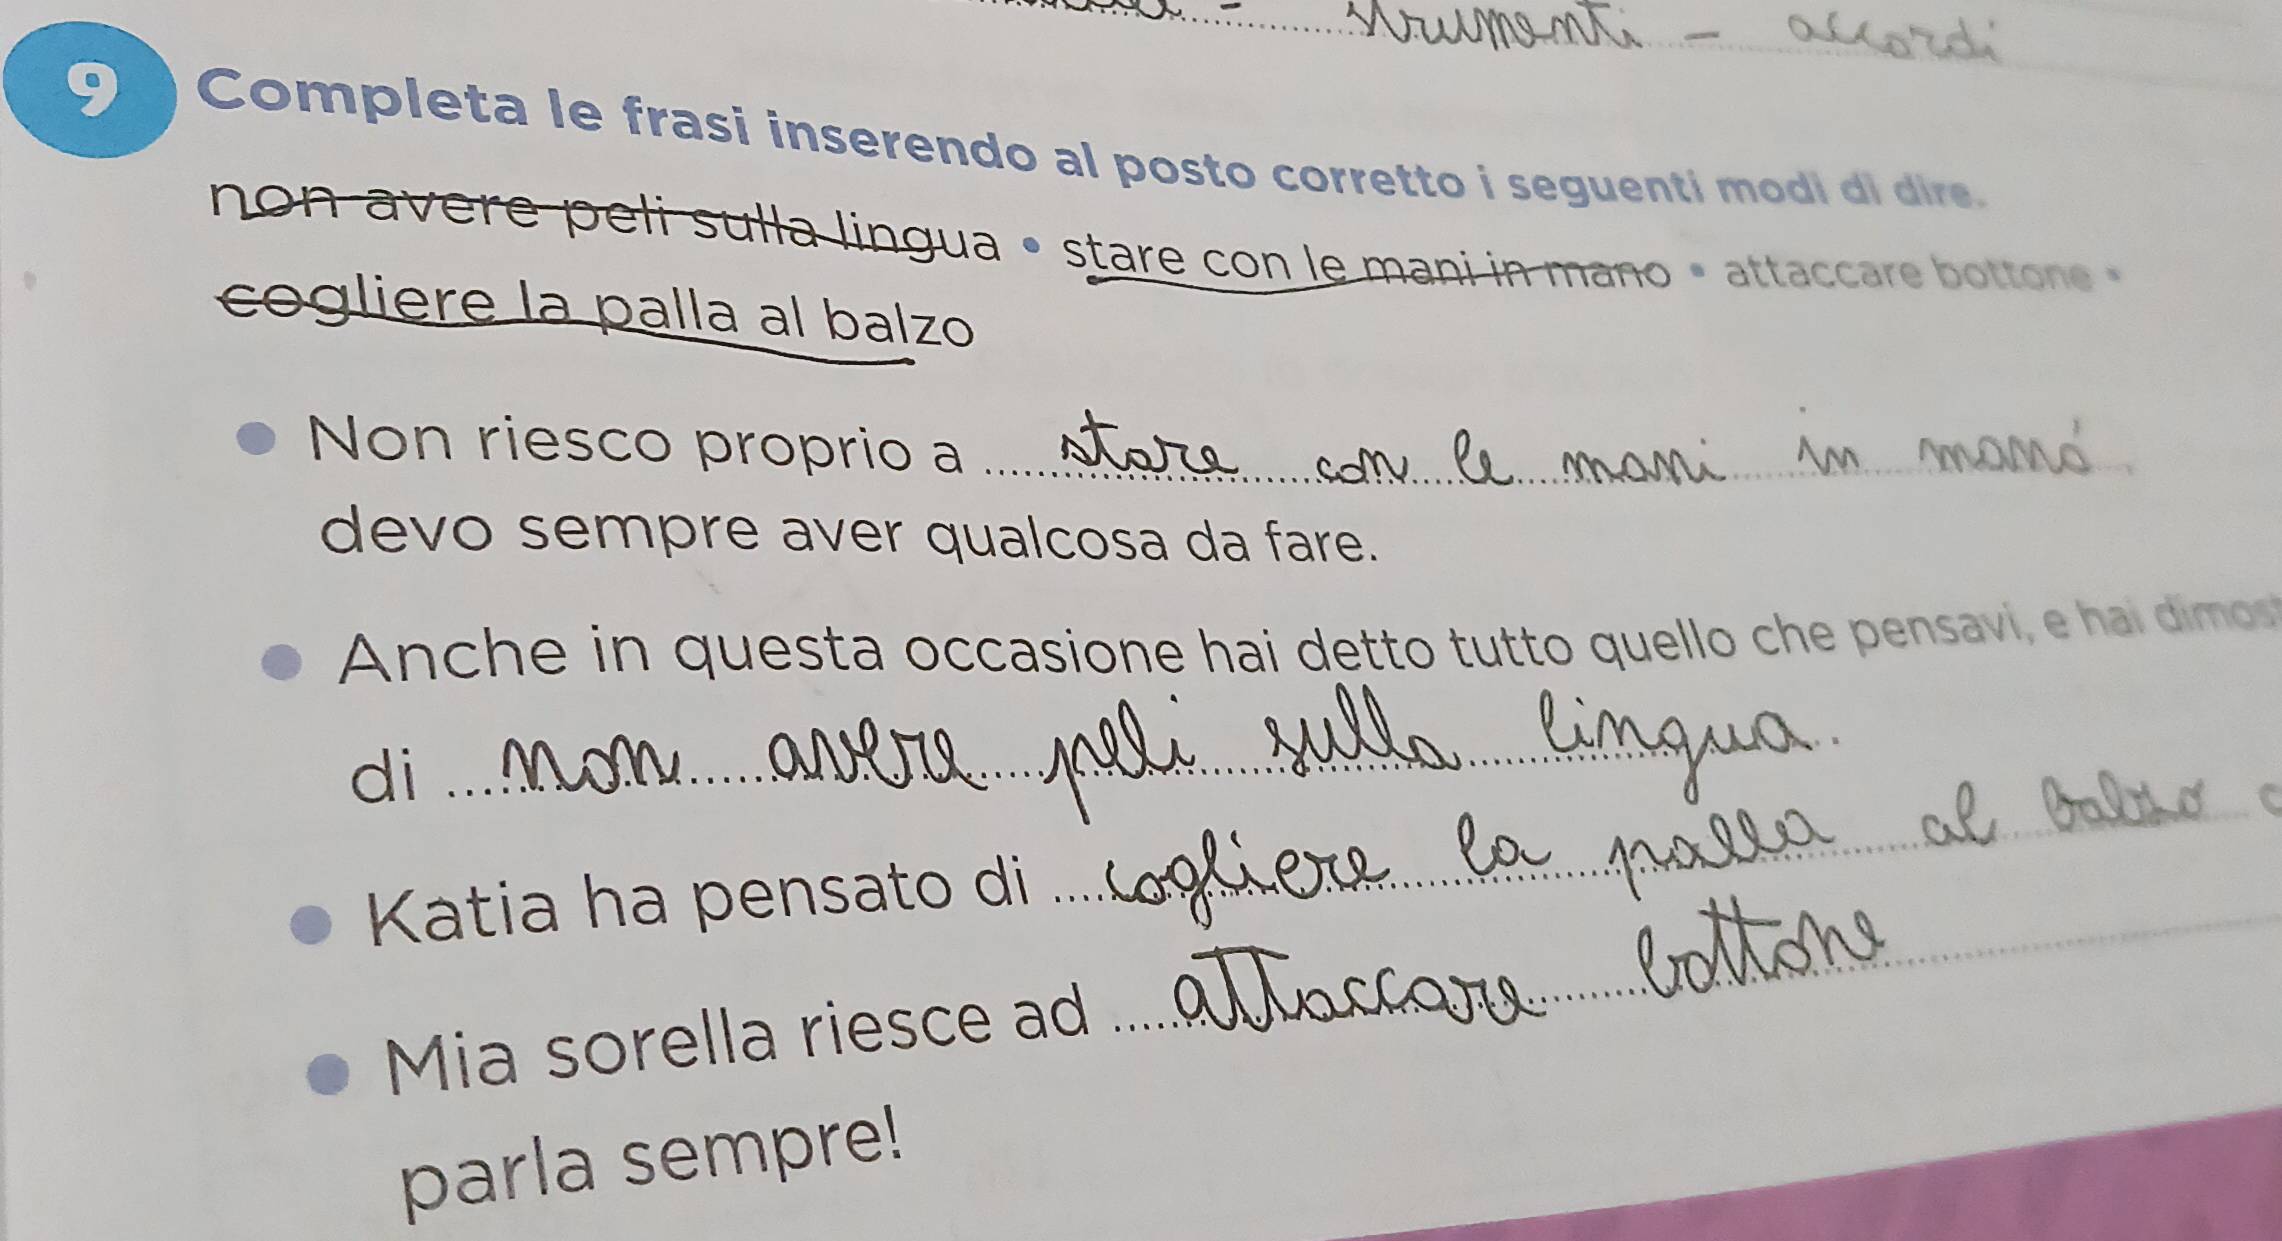 strumenti - accordi
9 Completa le frasi inserendo al posto corretto i seguenti modi di dire.
non avere peli sulla lingua • stare con le mani in mano • attaccare bottone •
cogliere la palla al balzo
• Non riesco proprio a stare con le mani in mano
devo sempre aver qualcosa da fare.
• Anche in questa occasione hai detto tutto quello che pensavi, e hai dimost
di non avere peli sulla lingua.
• Katia ha pensato di cogliere la palla al balzo
• Mia sorella riesce ad attaccare bottone
parla sempre!